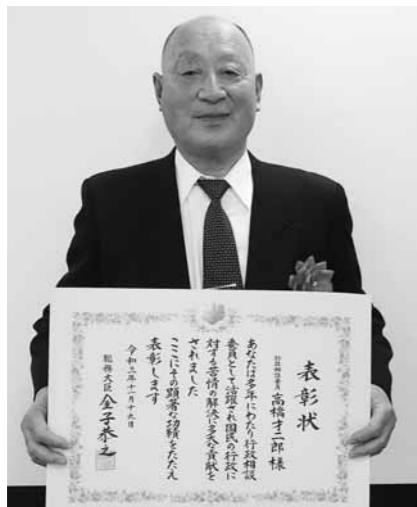 表彰状
行政相談委員
高橋才二郎様
あなたは多年にわたり行政相談
委員として活躍され国民の行政に
対する苦情の解決に多大な貢献を
されました
ここにその顕著な功績をたたえ
表彰します
令和三年十一月十九日
総務大臣 金子恭之